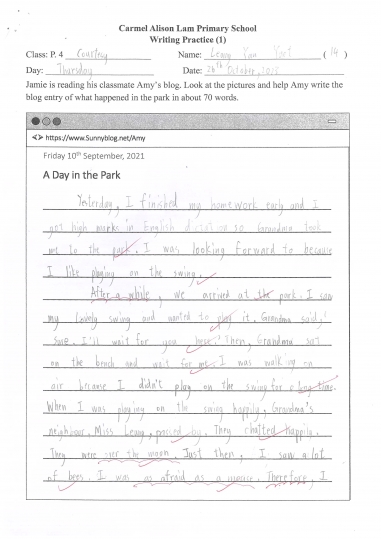 Carmel Alison Lam Primary School
Writing Practice (1)
Class: P. 4 Courtesy Name: Leung Yan Yuet ( 14 )
Day: Thursday Date: 26th October, 2023
Jamie is reading his classmate Amy's blog. Look at the pictures and help Amy write the
blog entry of what happened in the park in about 70 words.
https://www.Sunnyblog.net/Amy
Friday 10th September, 2021
A Day in the Park
Yesterday, I finished my homework early and I
got high marks in English dictation so Grandma took
me to the park. I was looking forward to because
I like playing on the swing.
After a while, we arrived at the park. I saw
my lovely swing and wanted to play it. Grandma said, '
Sure. I'll wait for you here.' Then, Grandma sat
on the bench and wait for me. I was walking on
air because I didn't play on the swing for a long time.
When I was playing on the swing happily, Grandma's
neighbour, Miss Leung, passed by. They chatted happily.
They were over the moon. Just then, I saw a lot
of bees. I was as afraid as a mouse. Therefore, I